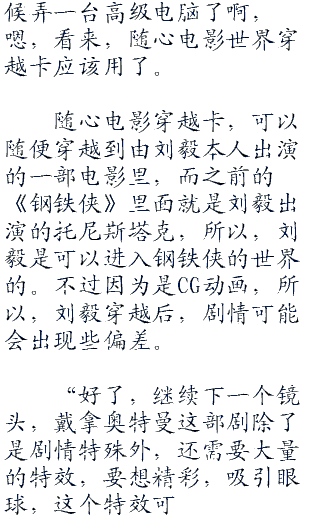 候弄一台高级电脑了啊，
嗯，看来，随心电影世界穿
越卡应该用了。
随心电影穿越卡，可以
随便穿越到由刘毅本人出演
的一部电影里，而之前的
《钢铁侠》里面就是刘毅出
演的托尼斯塔克，所以，刘
毅是可以进入钢铁侠的世界
的。不过因为是CG动画，所
以，刘毅穿越后，剧情可能
会出现些偏差。
“好了，继续下一个镜
头，戴拿奥特曼这部剧除了
是剧情特殊外，还需要大量
的特效，要想精彩，吸引眼
球，这个特效可